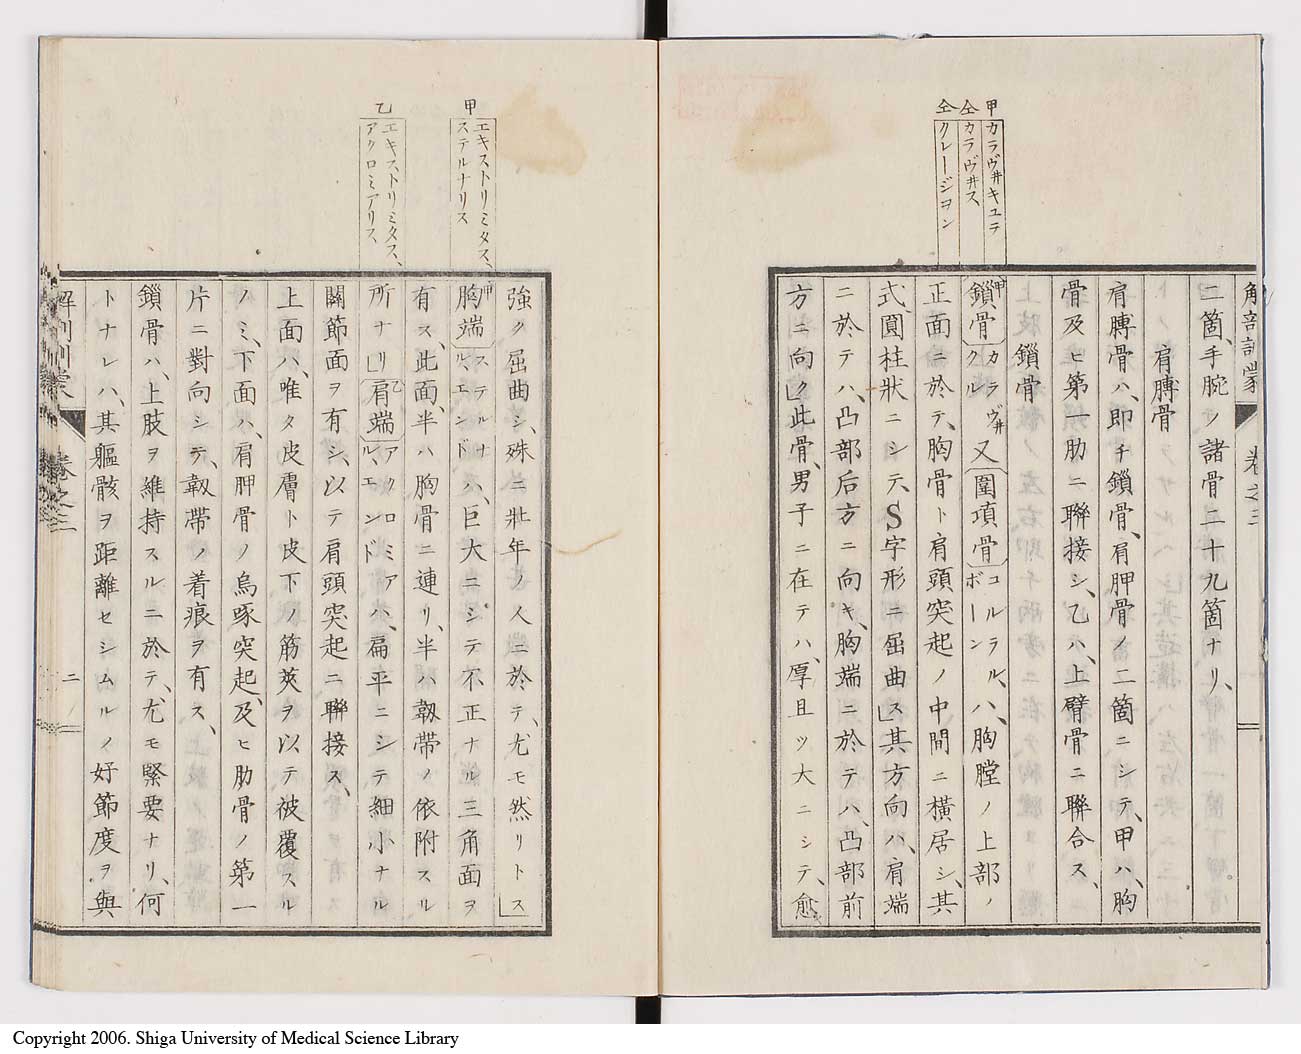 解剖訓蒙　卷之三
甲
カラヴ井キユラ
仝
カラヴ井ス
仝
クレージヨン
二箇、手腕ノ諸骨二十九箇ナリ、
肩膊骨
肩膊骨ハ、即チ鎖骨、肩胛骨ノ二箇ニシテ、甲ハ、胸
骨及ヒ第一肋ニ聯接シ、乙ハ、上臂骨ニ聯合ス、
鎖骨
甲鎖骨カラヴ井クル又圍項骨コルラル、ボーンハ、胸膛ノ上部ノ
正面ニ於テ、胸骨ト肩頭突起ノ中間ニ橫居シ、其
式、圓柱狀ニシテ、S字形ニ屈曲ス」其方向ハ、肩端
ニ於テハ、凸部后方ニ向キ、胸端ニ於テハ、凸部前
方ニ向ク」此骨、男子ニ在テハ、厚且ツ大ニシテ、愈
甲
エキストリミタス、
ステルナリス
乙
エキストリミタス、
アクロミアリス
強ク屈曲シ、殊ニ壯年ノ人ニ於テ、尤モ然リトス」
甲胸端ステルナル、エンドハ、巨大ニシテ不正ナル三角面ヲ
有ス、此面、半ハ胸骨ニ連リ、半ハ韌帶ノ依附スル
所ナリ」乙肩端アクロミアル、エンドハ、扁平ニシテ細小ナル
關節面ヲ有シ、以テ肩頭突起ニ聯接ス、
上面ハ、唯タ皮膚ト皮下ノ筋莢ヲ以テ被覆スル
ノミ、下面ハ、肩胛骨ノ烏啄突起、及ヒ肋骨ノ第一
片ニ對向シテ、韌帶ノ着痕ヲ有ス、
鎖骨ハ、上肢ヲ維持スルニ於テ、尤モ緊要ナリ、何
トナレハ、其軀骸ヲ距離セシムルノ好節度ヲ與
解剖訓蒙　卷之三　二
Copyright 2006. Shiga University of Medical Science Library